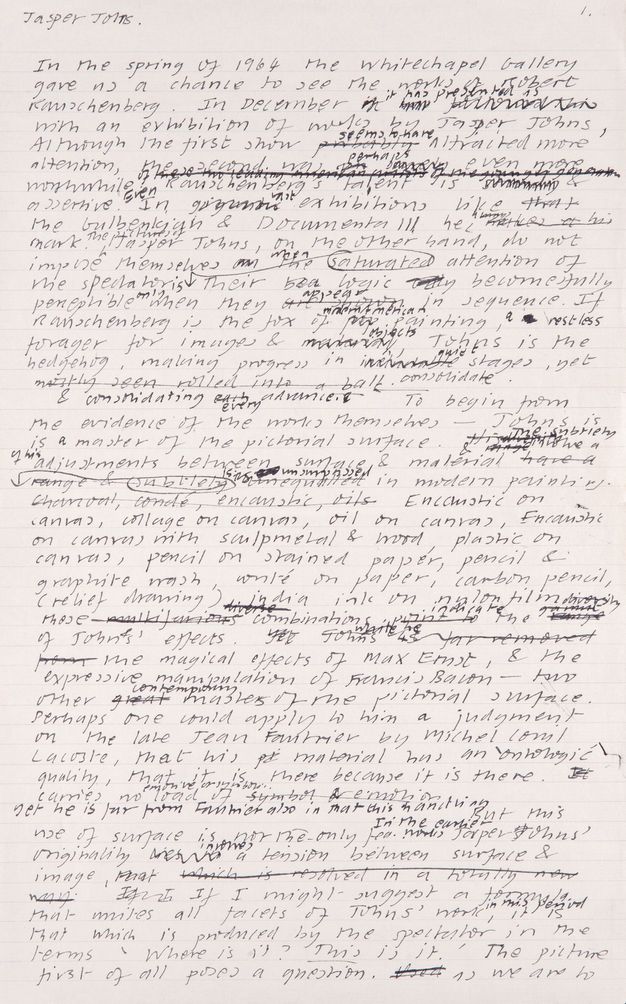 Jasper Johns.
1.
In the spring of 1964 the Whitechapel Gallery
gave us a chance to see the works of Robert
Rauschenberg. In December it has presented us
with an exhibition of works by Jasper Johns,
Although the first show seems to have attracted more
attention, the second was perhaps even more
worthwhile. Rauschenberg's talent is &
assertive. In exhibitions like that
the Gulbenkian & Documenta III he his
mark. the pictures of Jasper Johns, on the other hand, do not
impose themselves upon the saturated attention of
the spectator. Their logic only becomes fully
perceptible when they appear in sequence. If
Rauschenberg is the fox of modern American painting, a restless
forager for images & objects, Johns is the
hedgehog, making progress in quiet stages, yet
mostly seen rolled into a ball. consolidate.
& consolidating every advance. To begin from
the evidence of the works themselves — Johns is
is a master of the pictorial surface. the subtlety
of his adjustments between surface & material have a
range & subtlety is unsurpassed unequalled in modern painting.
charcoal, conté, encaustic, oils Encaustic on
canvas, collage on canvas, oil on canvas, Encaustic
on canvas with sculpmetal & wood, plastic on
canvas, pencil on stained paper, pencil &
graphite wash, conté on paper, carbon pencil,
(relief drawing), india ink on nylon film
these multifarious diverse combinations point to indicate the diversity
of Johns's effects. Yet Johns while he is far removed
from the magical effects of Max Ernst, & the
expressive manipulation of Francis Bacon — two
other great contemporary masters of the pictorial surface.
Perhaps one could apply to him a judgment
on the late Jean Fautrier by Michel Conil
Lacoste, that his material has an 'ontologic'
quality, that it is there because it is there. It
carries no load of symbol & emotion
yet he is far from Fautrier also in that this handling
In the earlier works But this
use of surface is not the only Jasper Johns'
originality involves a tension between surface &
image, that which is resolved in a totally new
way. If I might suggest a formula
that unites all facets of Johns' work in this period it is
that which is produced by the spectator in the
terms 'Where is it? This is it.' The picture
first of all poses a question. as we are to